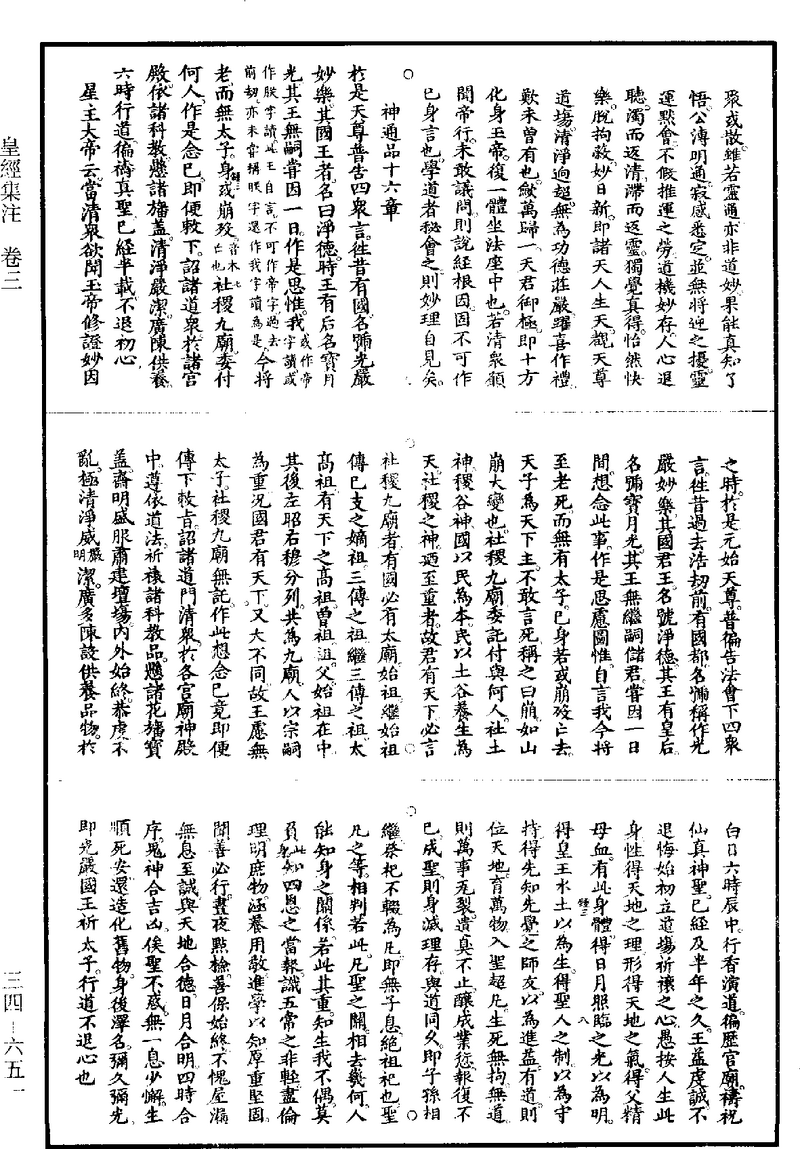 聚或散雖若靈通亦非道妙果能真知了
悟公溥明通寂感悉定並無將迎之擾靈
運默會不假推運之勞道機妙存人心退
聽濁而返清滯而返靈獨覺真得怡然快
樂脫拘救妙日新即諸天人生天覩天尊
道場清淨逈超無為功德莊嚴躍喜作禮
歎未曾有也歛萬歸一天君御極即十方
化身玉帝復一體坐法座中也若清衆願
聞帝行未敢議問則說經根因因不可作
已身言也學道者秘會之則妙理自見矣
神通品十六章
於是天尊普告四衆言徃昔有國名彌光嚴
妙樂其國王者名曰淨德時王有后名寶月
光其王無嗣嘗因一日作是思惟我或作帝字讀或
作朕字讀此王自言不可作帝字過去
前劫亦未嘗稱朕字還作我字讀為是今將
老而無太子身或崩歿音木七亡也社稷九廟委付
何人作是念已即便敕下詔諸道衆於諸宮
殿依諸科教懸諸旛蓋清淨嚴潔廣陳供養
六時行道徧禱真聖已經半載不退初心
星主大帝云當清衆欲聞玉帝修證妙因
之時於是元始天尊普徧告法會下四衆
言徃昔過去浩劫前有國都名彌稱作光
嚴妙樂其國君王名號淨德其王有皇后
名彌寶月光其王無繼嗣儲君嘗因一日
間想念此事作是思慮圖惟自言我今將
至老死而無有太子已身若或崩歿亡去
天子為天下主不敢言死稱之曰崩如山
崩大變也社稷九廟委託付與何人社土
神稷谷神國以民為本民以土谷養生為
天社稷之神廼至重者故君有天下必言
社稷九廟者有國必有太廟始祖繼始祖
傳已支之嫡祖三傳之祖繼三傳之祖太
高祖有天下之高祖曽祖祖父始祖在中
其後左昭右穆分列共為九廟人以宗嗣
為重況國君有天下又大不同故王慮無
太子社稷九廟無託作此想念已竟即便
傳下敕㫖詔諸道門清衆於各宮廟神殿
中遵依道法祈禳諸科教品懸諸花旛寶
蓋齋明盛服肅建壇塲内外始終恭虔不
亂極清淨威嚴明潔廣多陳設供養品物於
白日六時辰中行香演道徧歷宮廟禱祝
仙真神聖已經及半年之久王益虔誠不
退悔始初立道塲祈禳之心愚按人生此
身性得天地之理形得天地之氣得父精
母血有此身體得日月照臨之光以為明
得皇王水土以為生得聖人之制以為守
持得先知先覺之師友以為進益有道則
位天地育萬物入聖超凡生死無拘無道
則萬事旡裂遺真不止釀成業愆報復不
已成聖則身滅理存與道同久即子孫相
繼祭祀不輟為凡即無子息絶祖祀也聖
凡之等相判若此凡聖之闗相去幾何人
能知身之關係若此其重知生我不偶莫
負此身知四恩之當報識五常之非輕盡倫
理明庶物涵養用敬進學以知厚重堅固
聞善必行晝夜點檢善保始終不愧屋漏
無息至誠與天地合德日月合明四時合
序鬼神合吉凶俟聖不惑無一息少懈生
順死安還造化舊物身後澤名彌久彌光
即光嚴國王祈太子行道不退心也
鍾三
八
皇經集注　卷三
三四－六五一